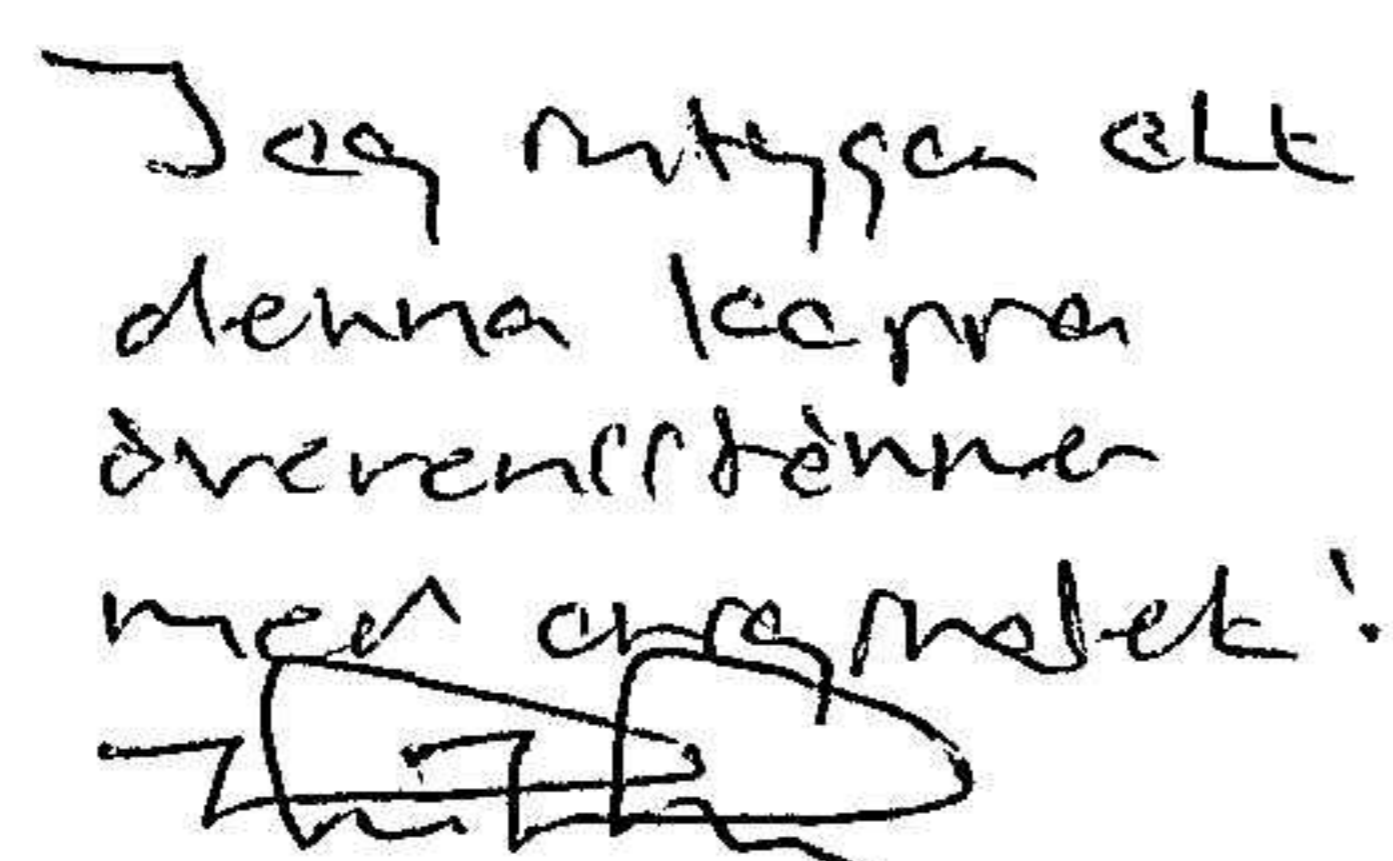 Jag intygar att
denna kappa
överensstämmer
med originalet!